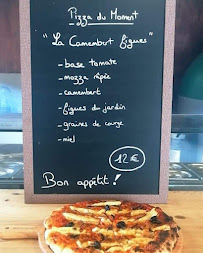 Pizza du Moment
"La Camembert figues"
- base tomate
- mozza râpée
- camembert
- figues du jardin
- graines de courge
- miel
12 €
Bon appétit!